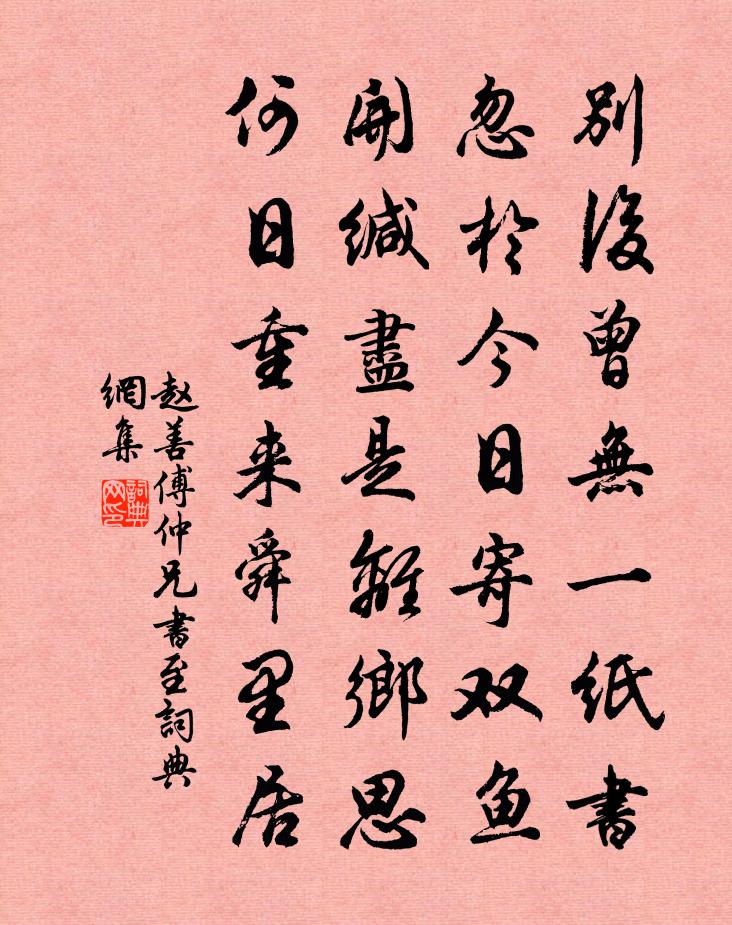 別後曾無一紙書
忽於今日寄双鱼
開緘盡是離鄉思
何日重来舜里居
赵善傅仲兄書至詞典
網集
詞典
网印